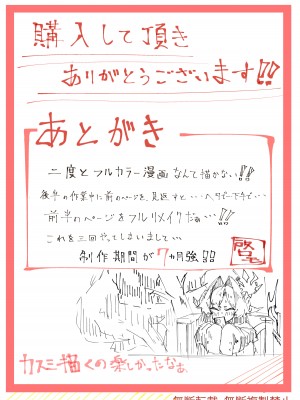 購入して頂き
ありがとうございます!!
あとがき
二度とフルカラー漫画なんて描かない!!
後半の作業中に前のページを見返すと…へタピー下手で…
前半のページをフルリメイクだぁ…!!
これを三回やってしまいまして…
制作期間が7カ月強!!
カスミ描くの楽しかったなぁ
無断転載・無断複製禁止